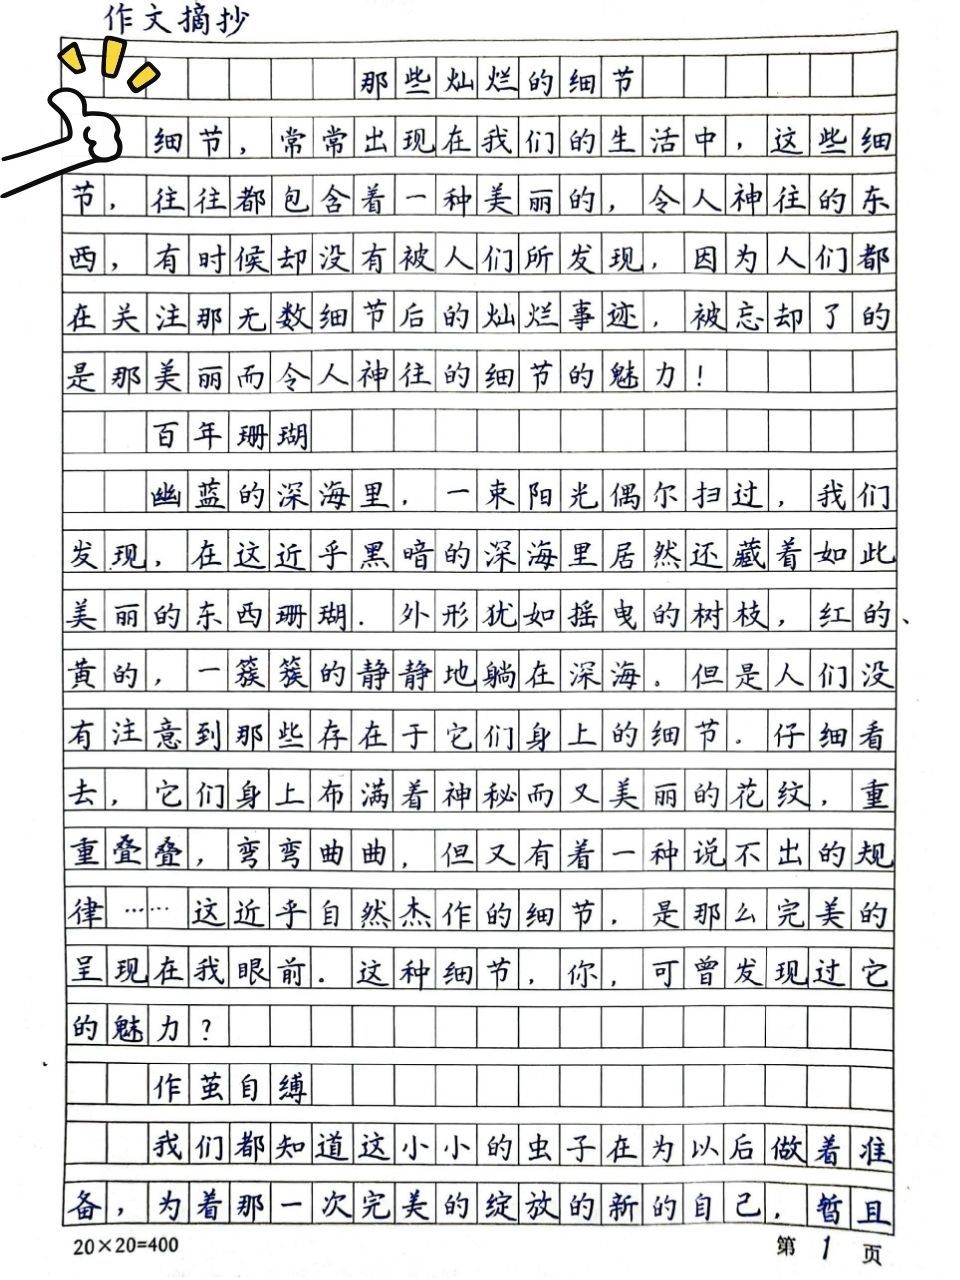 作文摘抄
那些灿烂的细节
细节，常常出现在我们的生活中，这些细
节，往往都包含着一种美丽的，令人神往的东
西，有时候却没有被人们所发现，因为人们都
在关注那无数细节后的灿烂事迹，被忘却了的
是那美丽而令人神往的细节的魅力！
百年珊瑚
幽蓝的深海里，一束阳光偶尔扫过，我们
发现，在这近乎黑暗的深海里居然还藏着如此
美丽的东西珊瑚．外形犹如摇曳的树枝，红的、
黄的，一簇簇的静静地躺在深海。但是人们没
有注意到那些存在于它们身上的细节。仔细看
去，它们身上布满着神秘而又美丽的花纹，重
重叠叠，弯弯曲曲，但又有着一种说不出的规
律……这近乎自然杰作的细节，是那么完美的
呈现在我眼前．这种细节，你，可曾发现过它
的魅力？
作茧自缚
我们都知道这小小的虫子在为以后做着准
备，为着那一次完美的绽放的新的自己，暂且
20×20=400
第1页